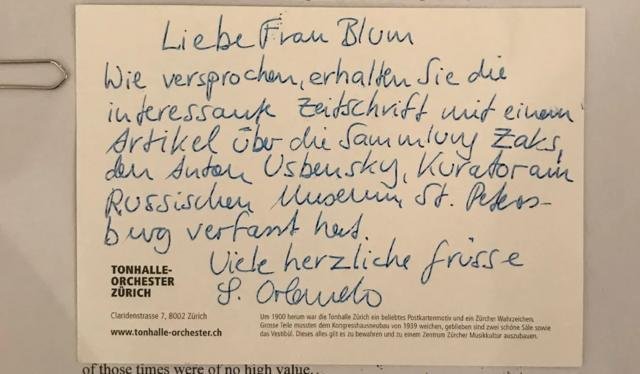 Liebe Frau Blum
Wie versprochen, erhalten Sie die
interessante Zeitschrift mit einem
Artikel über die Sammlung Zaks,
den Anton Uspensky, Kurator am
Russischen Museum St. Peters-
burg verfasst hat.
Viele herzliche Grüsse
S. Orlando
TONHALLE-
ORCHESTER
ZÜRICH
Claridenstrasse 7, 8002 Zürich
www.tonhalle-orchester.ch
Um 1900 herum war die Tonhalle Zürich ein beliebtes Postkartenmotiv und ein Zürcher Wahrzeichen.
Grosse Teile mussten dem Kongresshausneubau von 1939 weichen, geblieben sind zwei schöne Säle sowie
das Vestibül. Dieses alles gilt es zu bewahren und zu einem Zentrum Zürcher Musikkultur auszubauen.
of those times were of no high value.